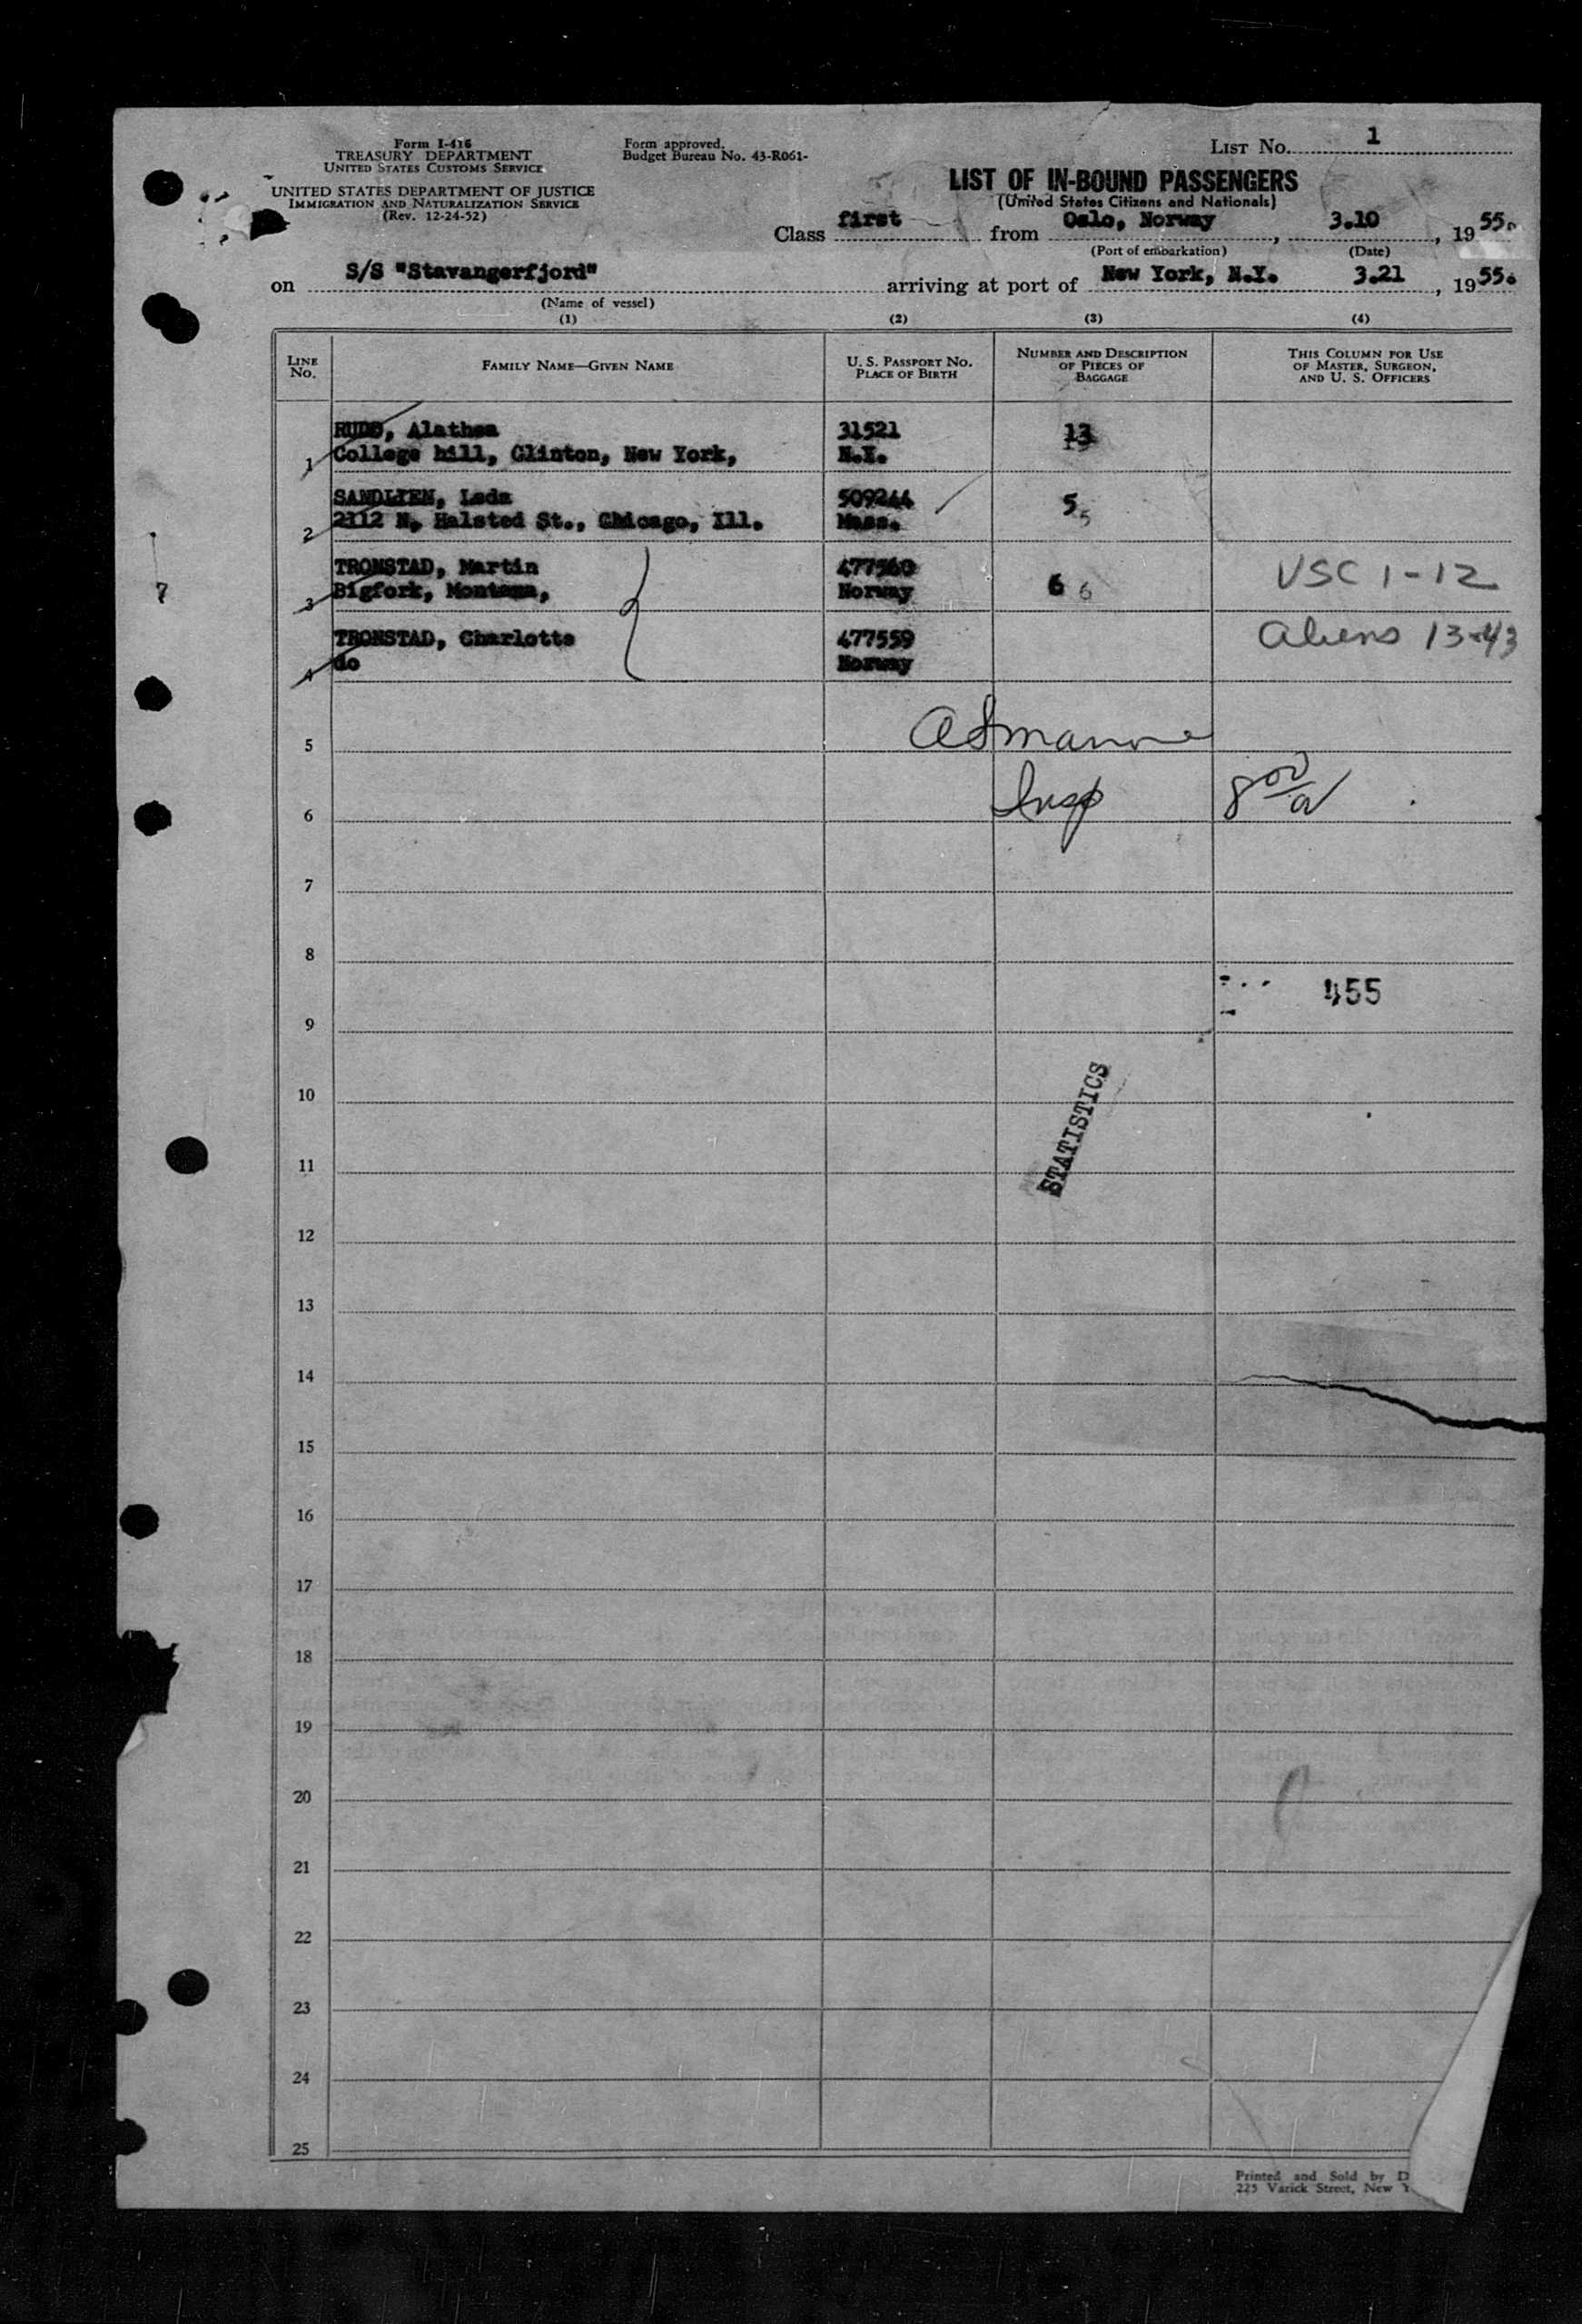 Form I-416
TREASURY DEPARTMENT
UNITED STATES CUSTOMS SERVICE
UNITED STATES DEPARTMENT OF JUSTICE
IMMIGRATION AND NATURALIZATION SERVICE
(Rev. 12-24-52)
Form approved.
Budget Bureau No. 43-R061-
LIST No. 1
LIST OF IN-BOUND PASSENGERS
(United States Citizens and Nationals)
Class first from Oslo, Norway, 3.10, 1955.
(Port of embarkation) (Date)
on S/S "Stavangerfjord" arriving at port of New York, N.Y. 3.21, 1955.
(Name of vessel)
(1) (2) (3) (4)
LINE No. FAMILY NAME—GIVEN NAME U. S. PASSPORT NO. PLACE OF BIRTH NUMBER AND DESCRIPTION OF PIECES OF BAGGAGE THIS COLUMN FOR USE OF MASTER, SURGEON, AND U. S. OFFICERS
RUDD, Alathea 31521 13
1 College hill, Clinton, New York, N.Y.
SANDLIEN, Leda 509244 5 5
2 2112 N. Halsted St., Chicago, Ill. Mass.
TRONSTAD, Martin 477560
3 Bigfork, Montana, Norway 6 6 USC 1-12
TRONSTAD, Charlotte 477559 Aliens 13-43
4 do Norway
5
6 Insp 8 00/a
7
8
9 455
10
11 STATISTICS
12
13
14
15
16
17
18
19
20
21
22
23
24
25
Printed and Sold by D
225 Varick Street, New Y
7